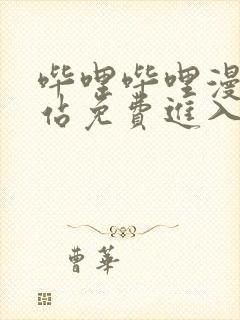 哔哩哔哩漫
佔免費進入
曹華